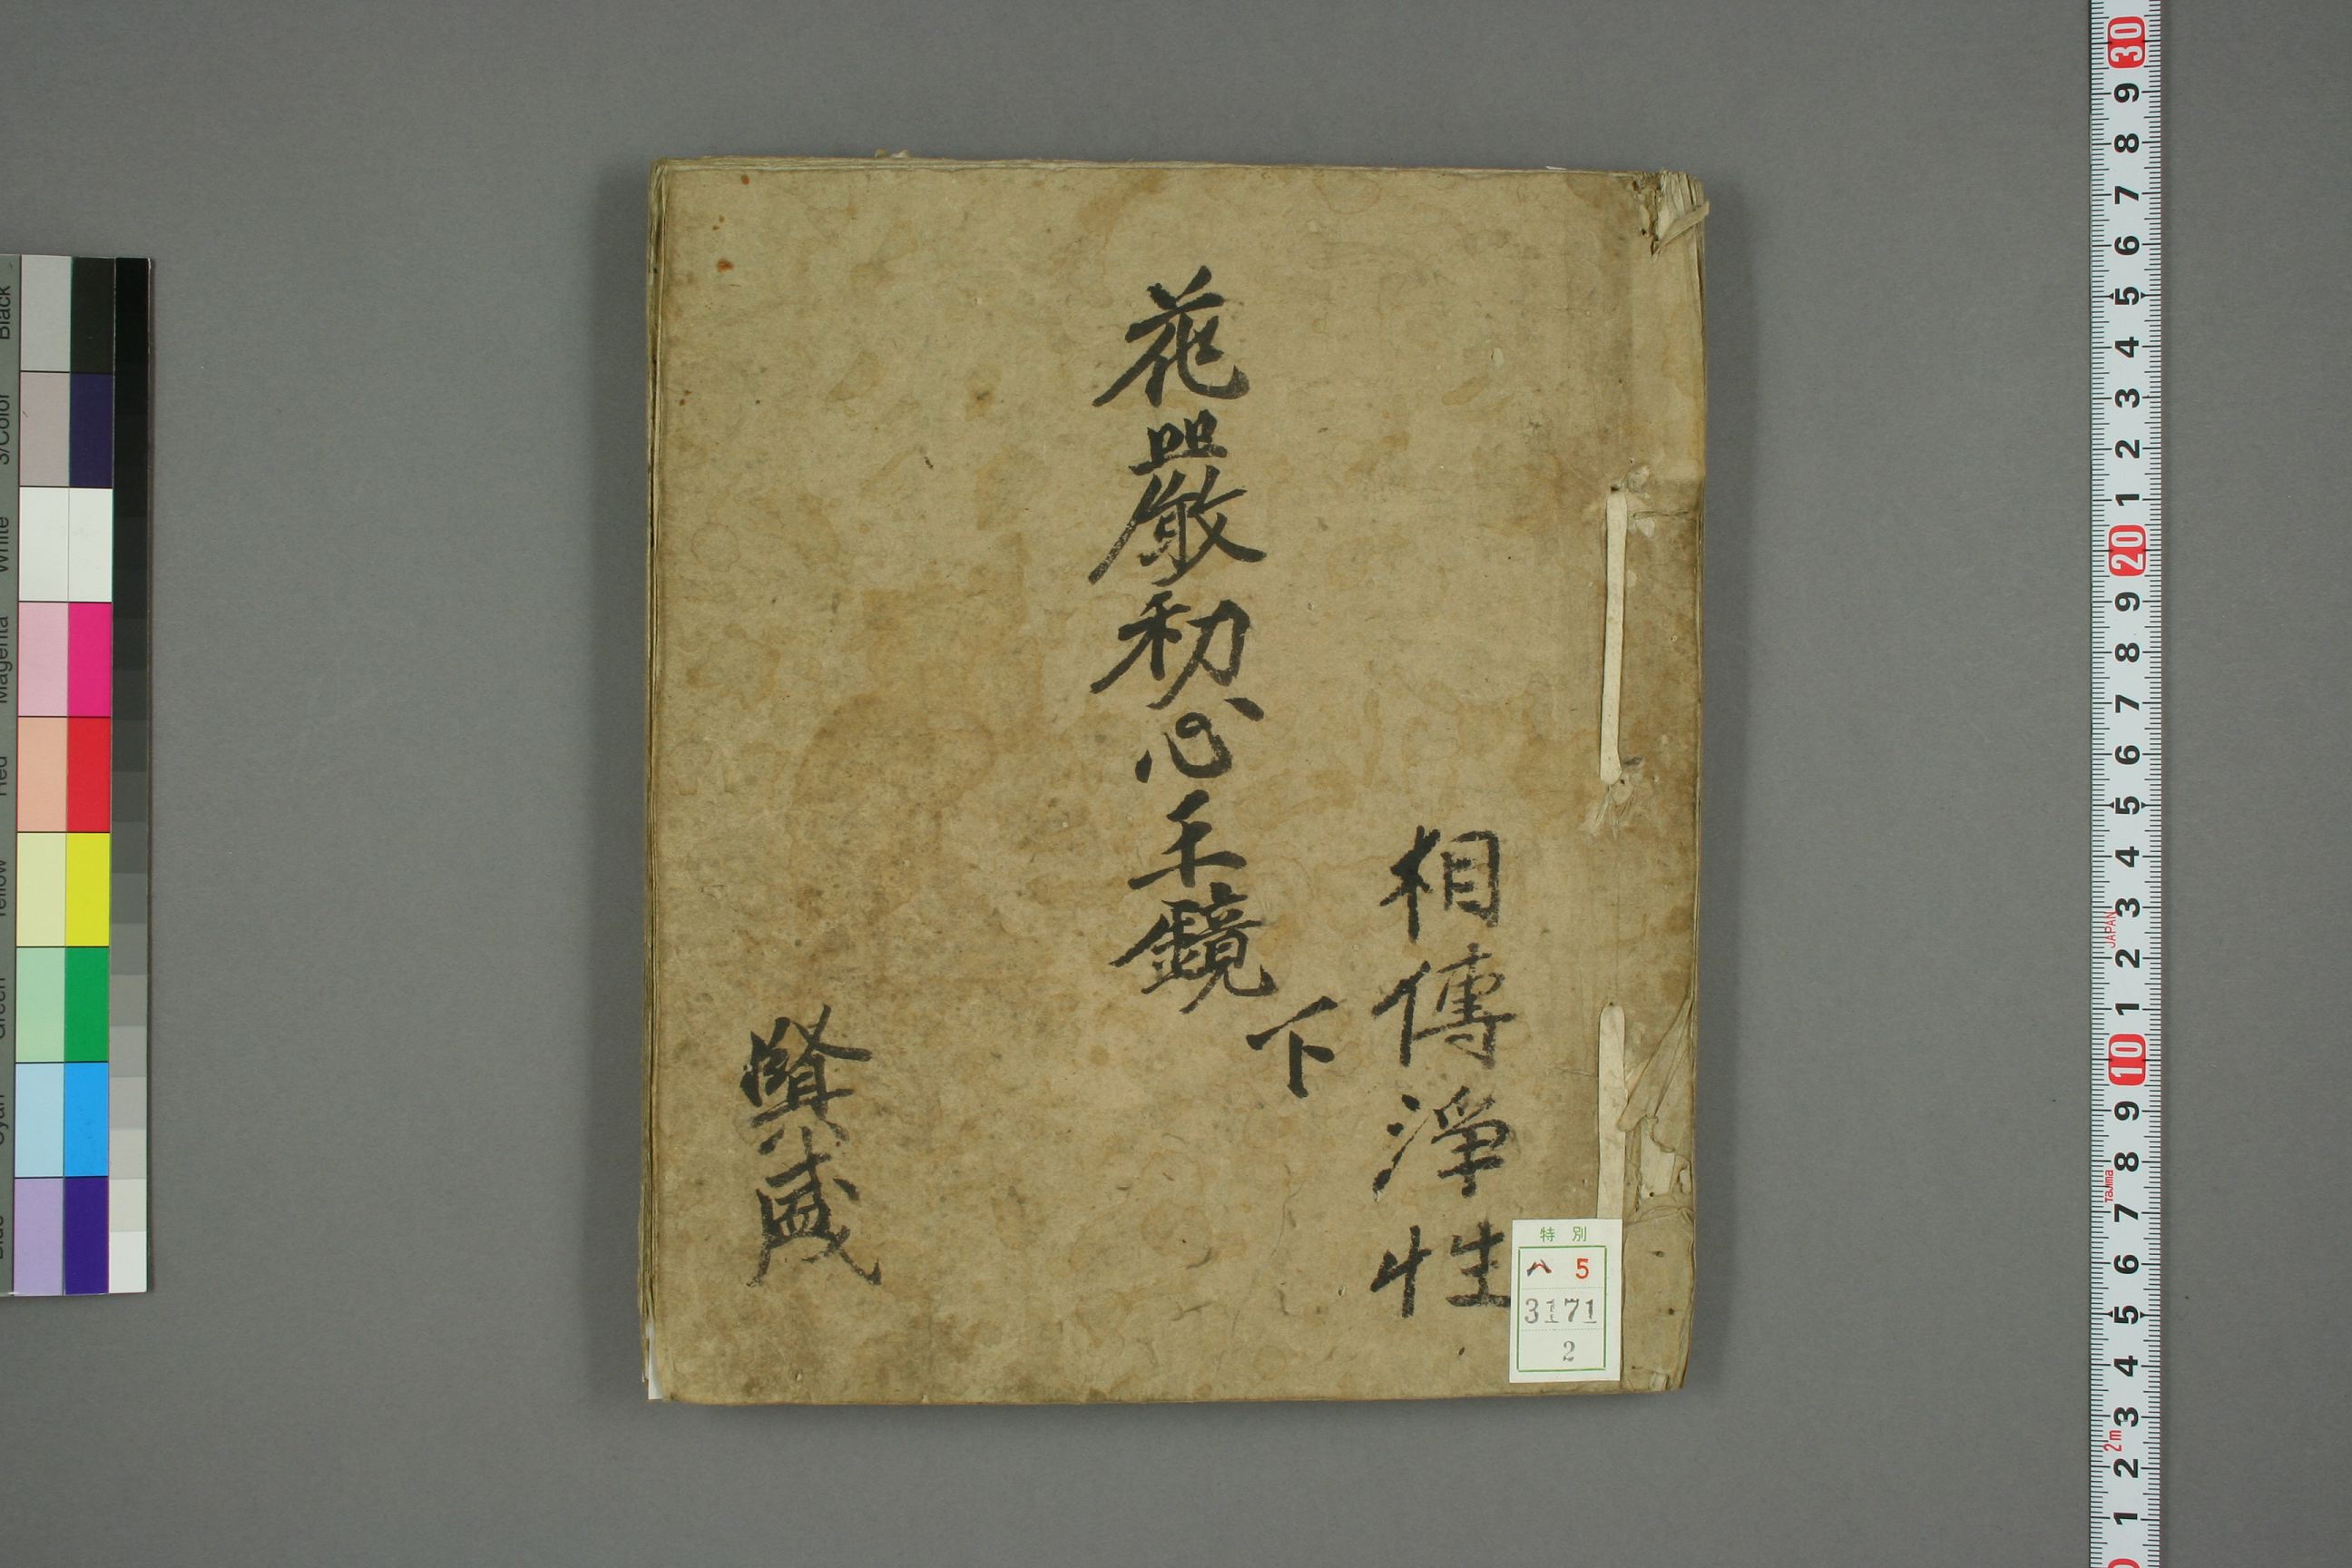 相傳淨性
花嚴初心王鏡
下
賢盛
特別
ハ 5
3171
2
Black
3/Color
White
Magenta
Red
Yellow
Green
Cyan
Blue
30
9
8
7
6
5
4
3
2
1
20
9
8
7
6
5
4
3
2
1
10
9
8
7
6
5
4
3
2
1
JAPAN
Tajima
2m